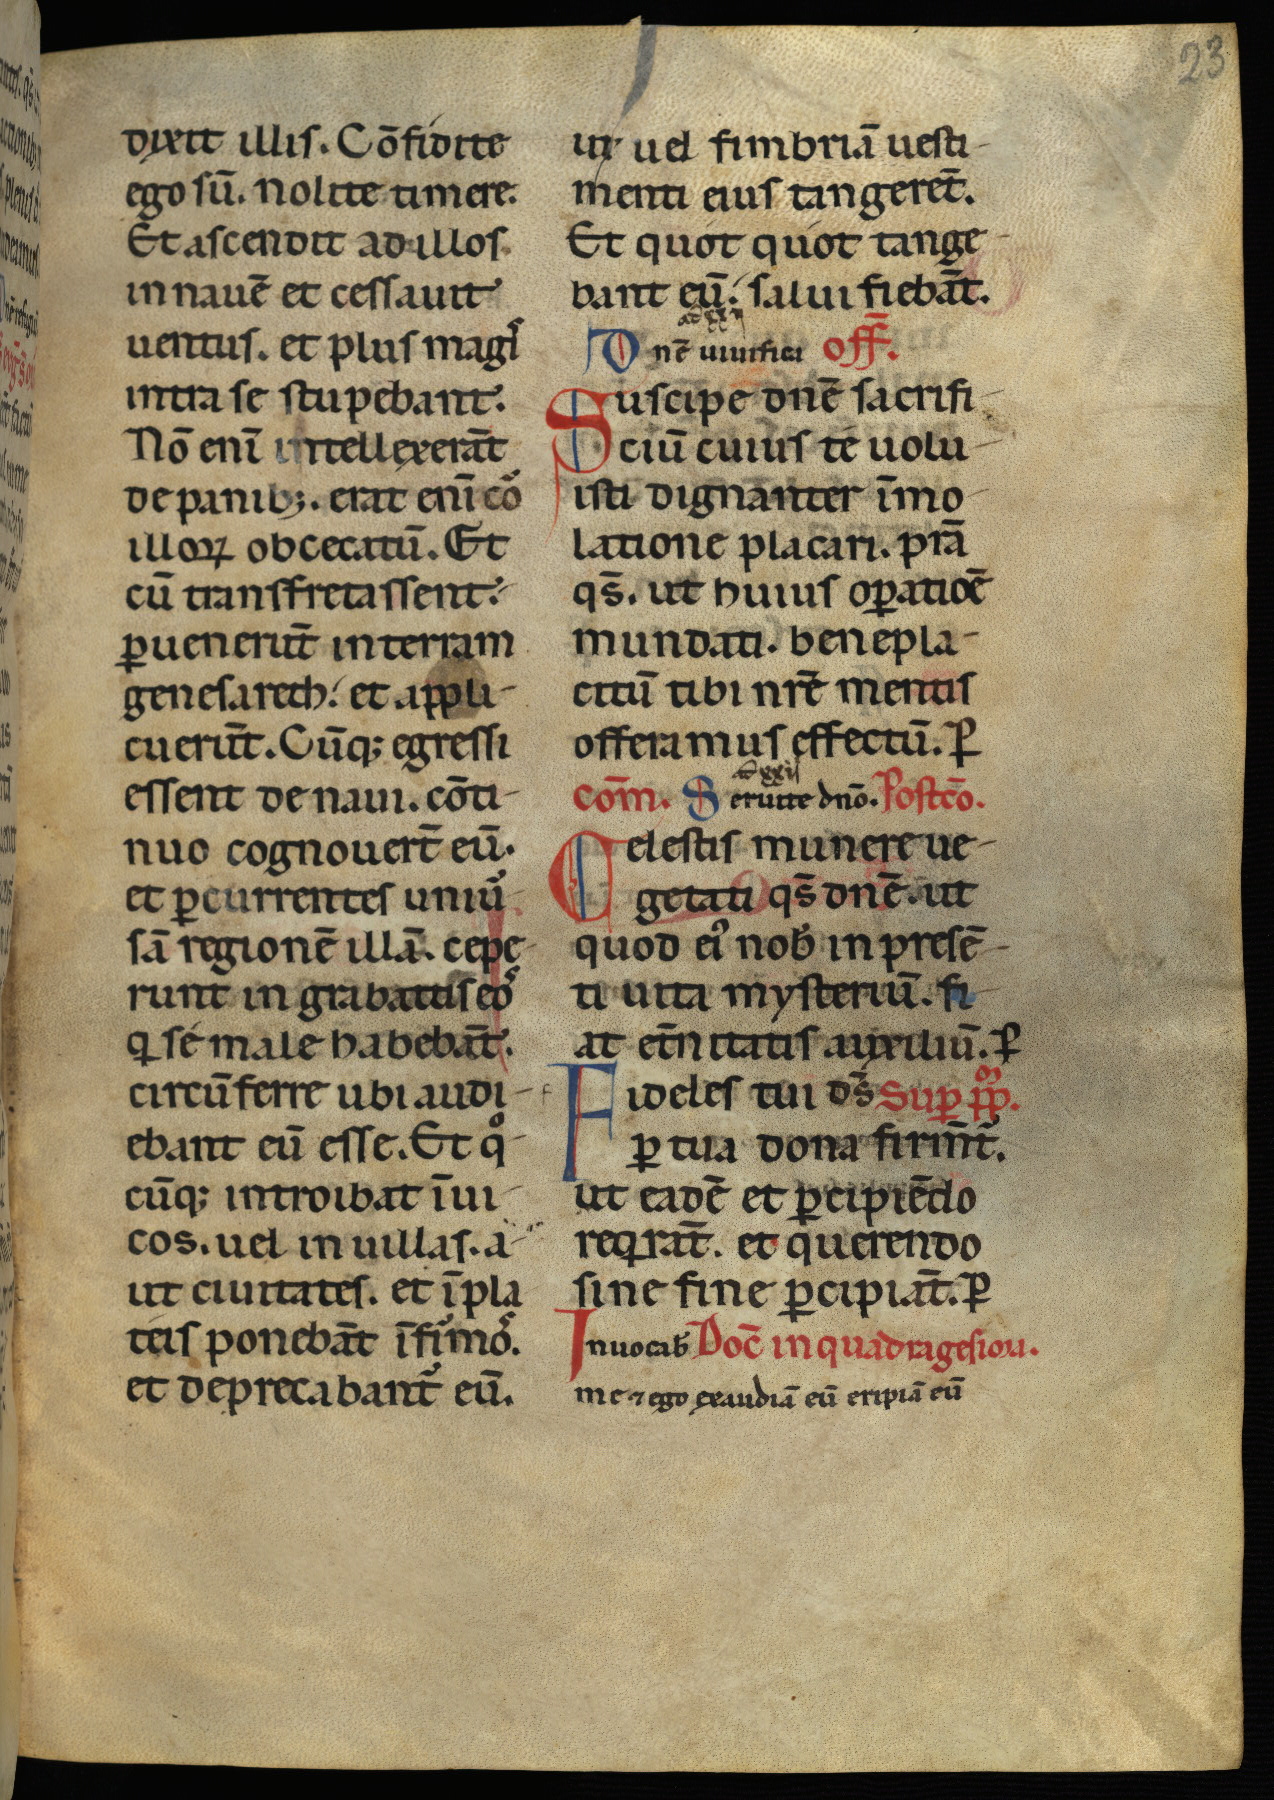 23
dixit illis. Cōfidite
ego sū. nolite timere.
Et ascendit ad illos
in nauē et cessauit
uentus. et plus magͥs
intra se stupebant.
Nō enī intellexerāt
de panibꝫ. erat enī coͬ
illoꝝ obcecatū. Et
cū transfretassent.
ꝑuenerūt in terram
genesareth. et appli-
cuerūt. Cūqꝫ egressi
essent de naui. cōti-
nuo cognouert̄ eū.
et ꝑcurrentes uniuͬ
sā regionē illā. cepe-
runt in grabattis eoˢ
q̇ se male habebāt.
circūferre ubi audi-
ebant eū esse. Et qͦ-
cūqꝫ introibat ī ui-
cos. uel in uillas. a-
ut ciuitates. et ī pla
teis ponebāt īfiͬmoˢ.
et deprecabantͬ eū.
ut uel fimbriā uesti-
menti eius tangeret̄.
Et quot quot tange-
bant eū. salui fiebāt.
ad xxꝰ
Dnē uiuifica Off̄.
Suscipe dnē sacrifi-
ciū cuius te uolu-
isti dignanter īmo-
latione placari. pr̄a
qs̄. ut huius oꝑatiōē
mundati. benepla-
citū tibi nr̄e mentis
offeramus effectū. P̱
ad xxiȷ
Com̄. Seruite dnō. Postcō.
Celestis munere ue-
getati qs̄ dnē. ut
quod ēi nob̄ in presē-
ti uita mysteriū. fi-
at et̄nitatis auxiliū. P̱
Fideles tui ds̄ Suꝑ ppͫ.
ꝑ tua dona firmn̄tͬ.
ut eadē et ꝑcipiēdo
reqͥrāt. et querendo
sine fine ꝑcipiāt. P̱
Inuocab̄ Doc̄ in quadragesima.
me ⁊ ego exaudiā eū eripiā eū